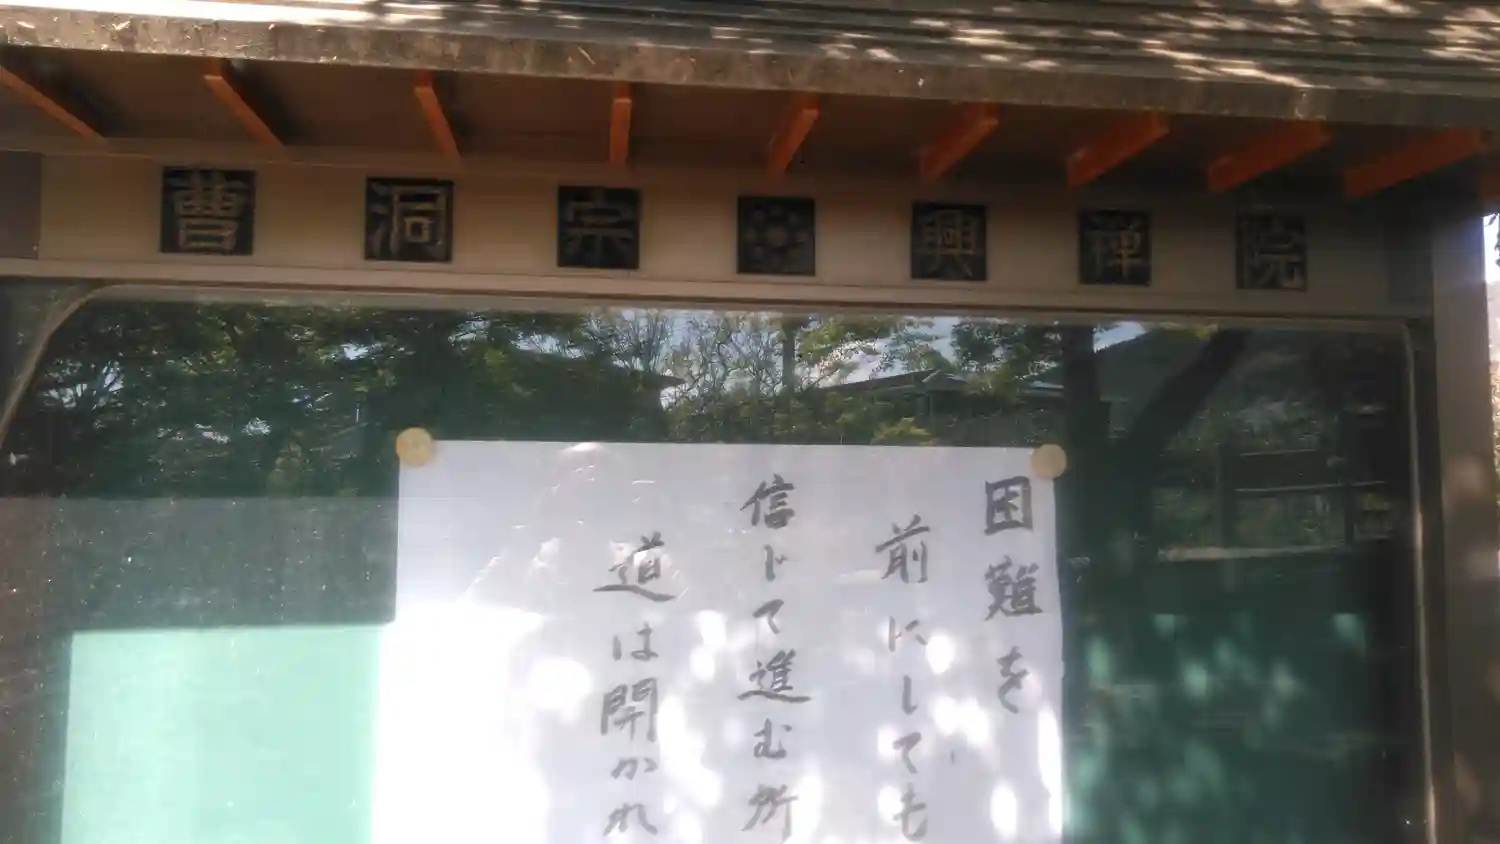 曹洞宗 興禅院
困難を
前にしても
信じて進む所
道は開かれ